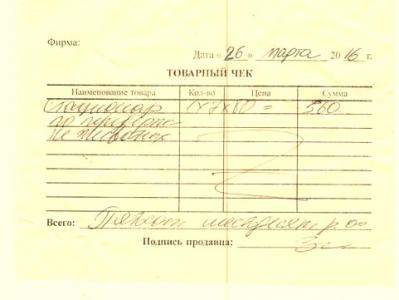 Фирма:
Дата « 26 » марта 2016 г.
ТОВАРНЫЙ ЧЕК
Наименование товара Кол-во Цена Сумма
Стационар 1х7х80 = 560
по передержке
не
Всего: Пятьсот шестьдесят р 00
Подпись продавца: